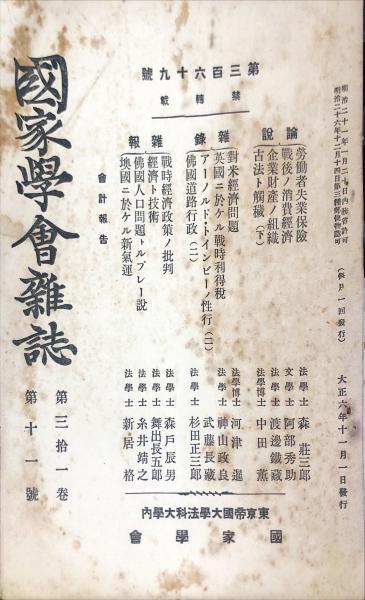 明治二十一年一月二十日內務省許可
明治二十六年十二月十四日第三種郵便物認可
(每月一回發行)
大正六年十一月一日發行
第三百六十九號
禁轉載
論說
勞働者失業保險 法學士 森莊三郎
戰後ノ消費經濟 文學士 阿部秀助
企業財產ノ組織 法學士 渡邊鐵藏
古法ト觸穢(下) 法學博士 中田薰
雜錄
對米經濟問題 法學博士 河津暹
英國ニ於ケル戰時利得稅 法學士 神山政良
アーノルド・トインビーノ性行(二) 武藤長藏
佛國道路行政(二) 法學士 杉田正三郎
雜報
戰時經濟政策ノ批判 法學士 森戶辰男
經濟ト技術 法學士 舞出長五郎
佛國人口問題トルプレー說 法學士 糸井靖之
墺國ニ於ケル新氣運 法學士 新居格
會計報告
東京帝國大學法科大學內
國家學會
國家學會雜誌
第三拾一卷
第十一號